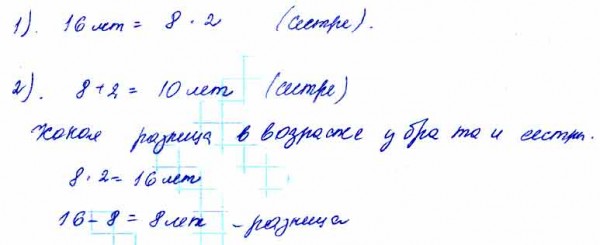 1). 16 лет = 8 · 2 (сестре).
2). 8 + 2 = 10 лет (сестре)
Какая разница в возрасте у брата и сестры.
8 · 2 = 16 лет
16 - 8 = 8 лет - разница